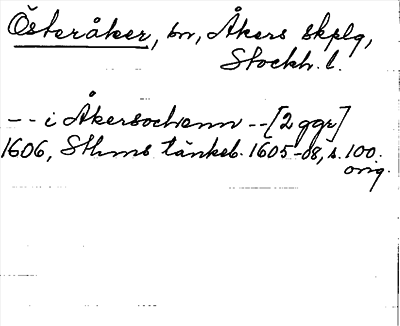 Österåker, sn, Åkers skplg,
Stockh. l.
-- i Åkersochenn -- [2 ggr]
1606, Sthms tänkeb. 1605-08, s. 100.
orig.